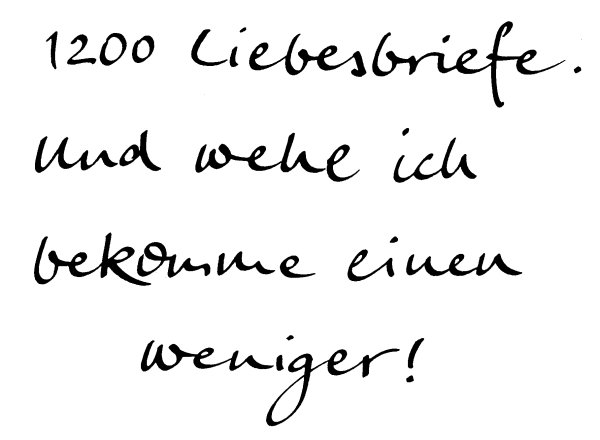 1200 Liebesbriefe.
Und wehe ich
bekomme einen
weniger!